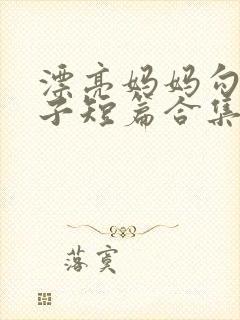 漂亮妈妈勾
子短篇合集
落寞